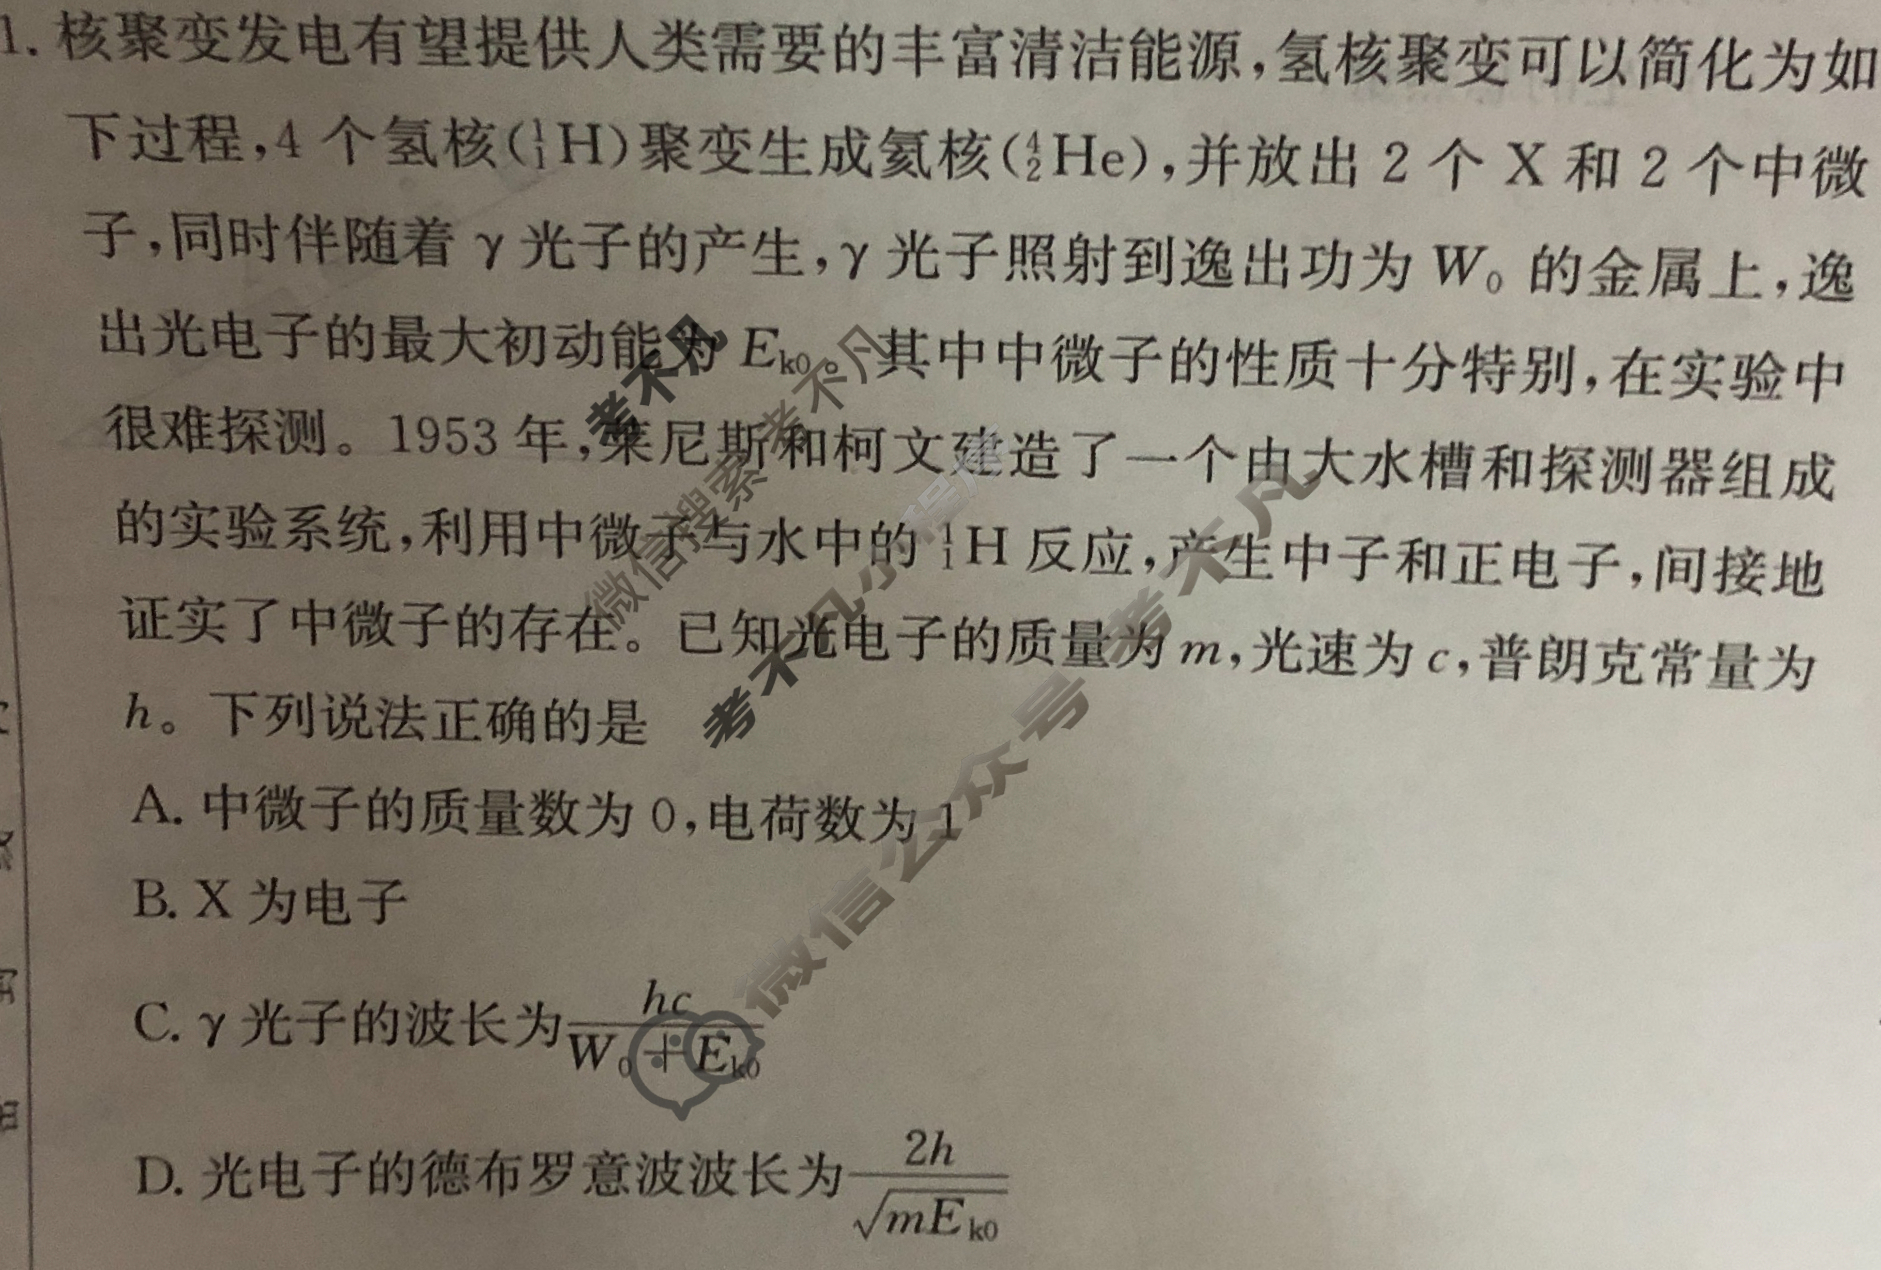 1. 核聚变发电有望提供人类需要的丰富清洁能源，氢核聚变可以简化为如
下过程，4 个氢核(¹₁H)聚变生成氦核(⁴₂He)，并放出 2 个 X 和 2 个中微
子，同时伴随着 γ 光子的产生，γ 光子照射到逸出功为 W₀ 的金属上，逸
出光电子的最大初动能为 Eₖ₀。其中中微子的性质十分特别，在实验中
很难探测。1953 年，莱尼斯和柯文建造了一个由大水槽和探测器组成
的实验系统，利用中微子与水中的 ¹₁H 反应，产生中子和正电子，间接地
证实了中微子的存在。已知光电子的质量为 m，光速为 c，普朗克常量为
h。下列说法正确的是
A. 中微子的质量数为 0，电荷数为 1
B. X 为电子
C. γ 光子的波长为 hc/(W₀+Eₖ₀)
D. 光电子的德布罗意波波长为 2h/√(mEₖ₀)
考不凡
微信搜索 考不凡
考不凡小程序
微信公众号 考不凡